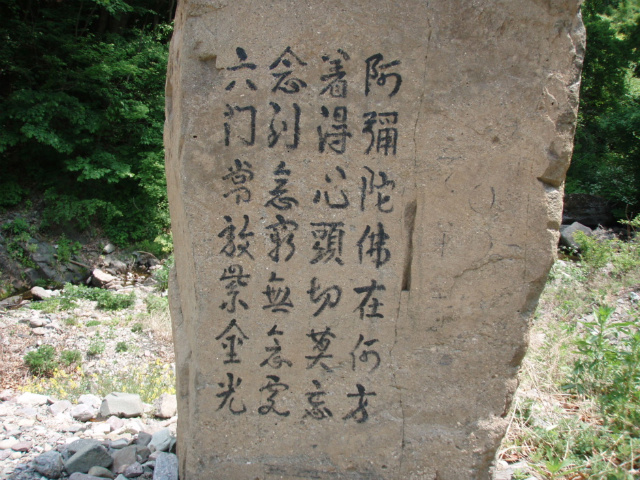 阿彌陀佛在何方
着得心頭切莫忘
念到念窮無念處
六门常放紫金光